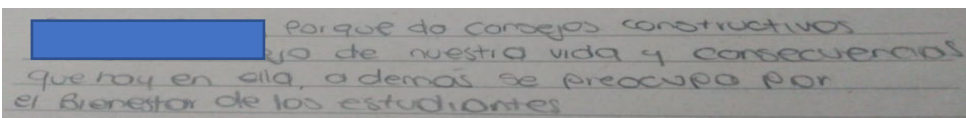 porque da consejos constructivos
de nuestra vida y consecuencias
que hay en ella, ademas se preocupa por
el Bienestar de los estudiantes